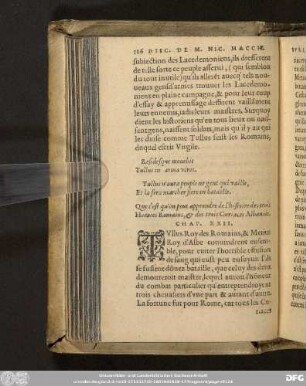 116 DISC. DE M. NIC. MACCH.
subiection des Lacedemoniens, ils dresserent
de telle sorte ce peuple asserui, (qui sembloit
du tout inutile) qu'ils allerét auecq' tels nou-
ueaux gensd'armes trouuer les Lacedemo-
niens en plaine campagne, & pour leur coup
d'essay & apprentissage desfirent vaillãment
leurs ennemis, iadis leurs maistres.
dient les historiens qu'en tous lieux on
naissent soldats, mais qu'il y ait qui
les duise comme Tullus feist les Romains,
duquel escrit Virgile.
Residesque mouebit
Tullus in arma viros.
Tullus n'aura peuple ne gent qui vaille,
Et la fera marcher fiere en bataille.
Que c'est qu'on peut apprendre de l'histoire des trois
Horaces Romains, & des trois Curiaces Albanois.
CHAP. XXII.
TVllus Roy des Romains, & Metius
Roy d'Albe conuindrent ensem-
ble, pour euiter l'horrible effusion
de sang qui eust peu ensuyuir s'ils
se fussent dónez bataille, que celuy des deux
demoureroit maistre, lequel auroit l'honneur
du combat particulier qu'entreprendroyét
trois cheualiers d'vne part & autant d'autre.
La fortune fut pour Rome, car tous les Cu-